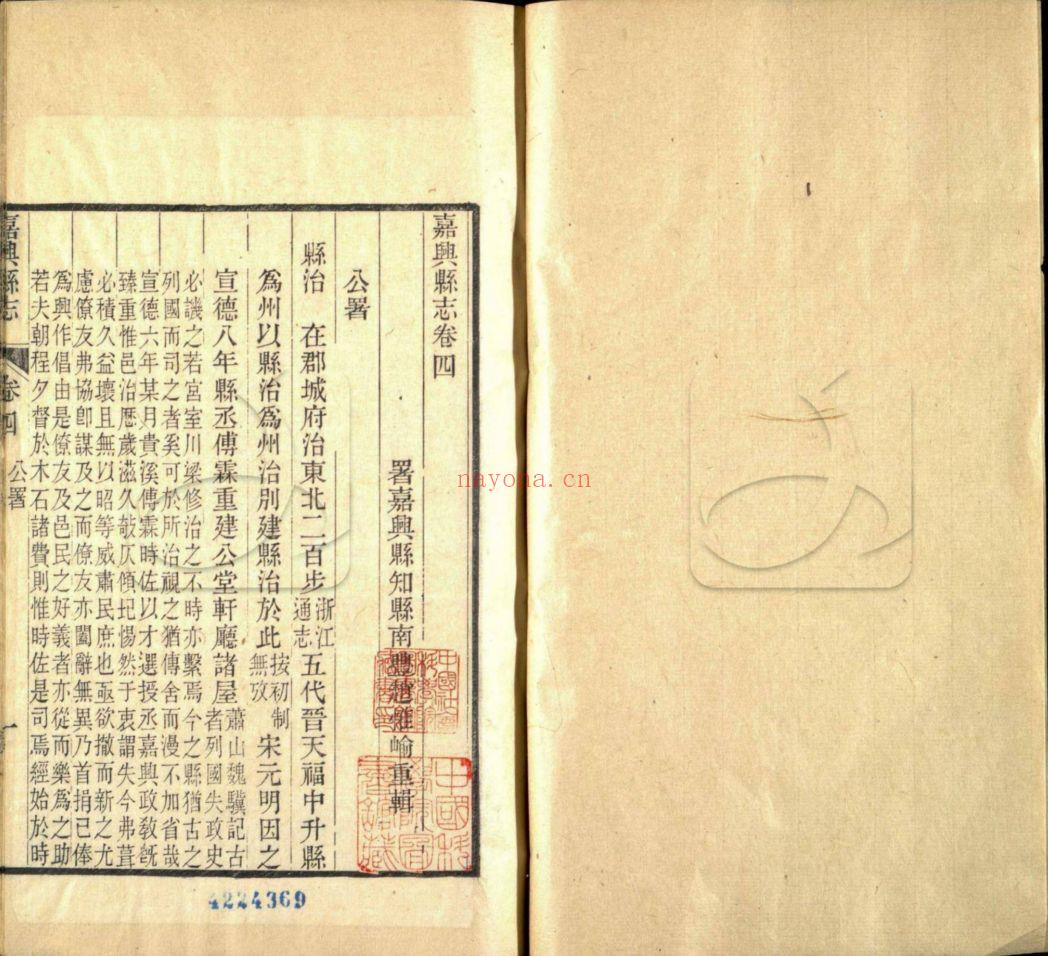 嘉興縣志卷四
署嘉興縣知縣南豐趙惟崳重輯
公署
縣治　在郡城府治東北二百步浙江通志五代晉天福中升縣
爲州以縣治爲州治別建縣治於此按初制無攷宋元明因之
宣德八年縣丞傅霖重建公堂軒廳諸屋蕭山魏驥記古者列國失政史
必譏之若宮室川梁修治之不時亦繫焉今之縣猶古之
列國而司之者奚可於所治視之猶傳舍而漫不加省哉
宣德六年某月貴溪傅霖時佐以才選授丞嘉興政敎旣
臻重惟邑治歷歲滋久攲仄傾圮惕然于衷謂失今弗葺
必積久益壞且無以昭等威肅民庶也亟欲撤而新之尤
慮僚友弗協卽謀及之而僚友亦闔辭無異乃首捐已俸
爲興作倡由是僚友及邑民之好義者亦從而樂爲之助
若夫朝程夕督於木石諸費則惟時佐是司焉經始於時
嘉興縣志
卷四
公署
一
4224369
nayona.cn